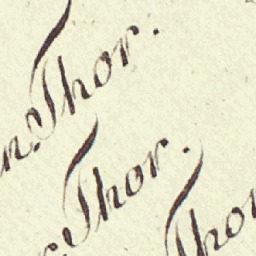 Thor.
Thor.
Thor